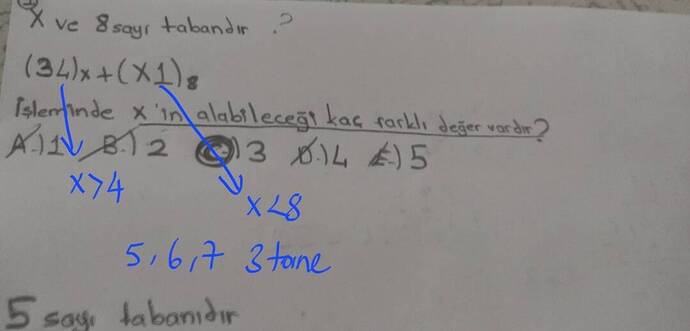 X ve 8 sayı tabandır ?
(34)x + (X1)8
işleminde x'in alabileceği kaç farklı değer vardır?
A.) 1 B.) 2 C.) 3 D.) 4 E.) 5
x>4
x<8
5, 6, 7 3 tane
5 sayı tabanıdır